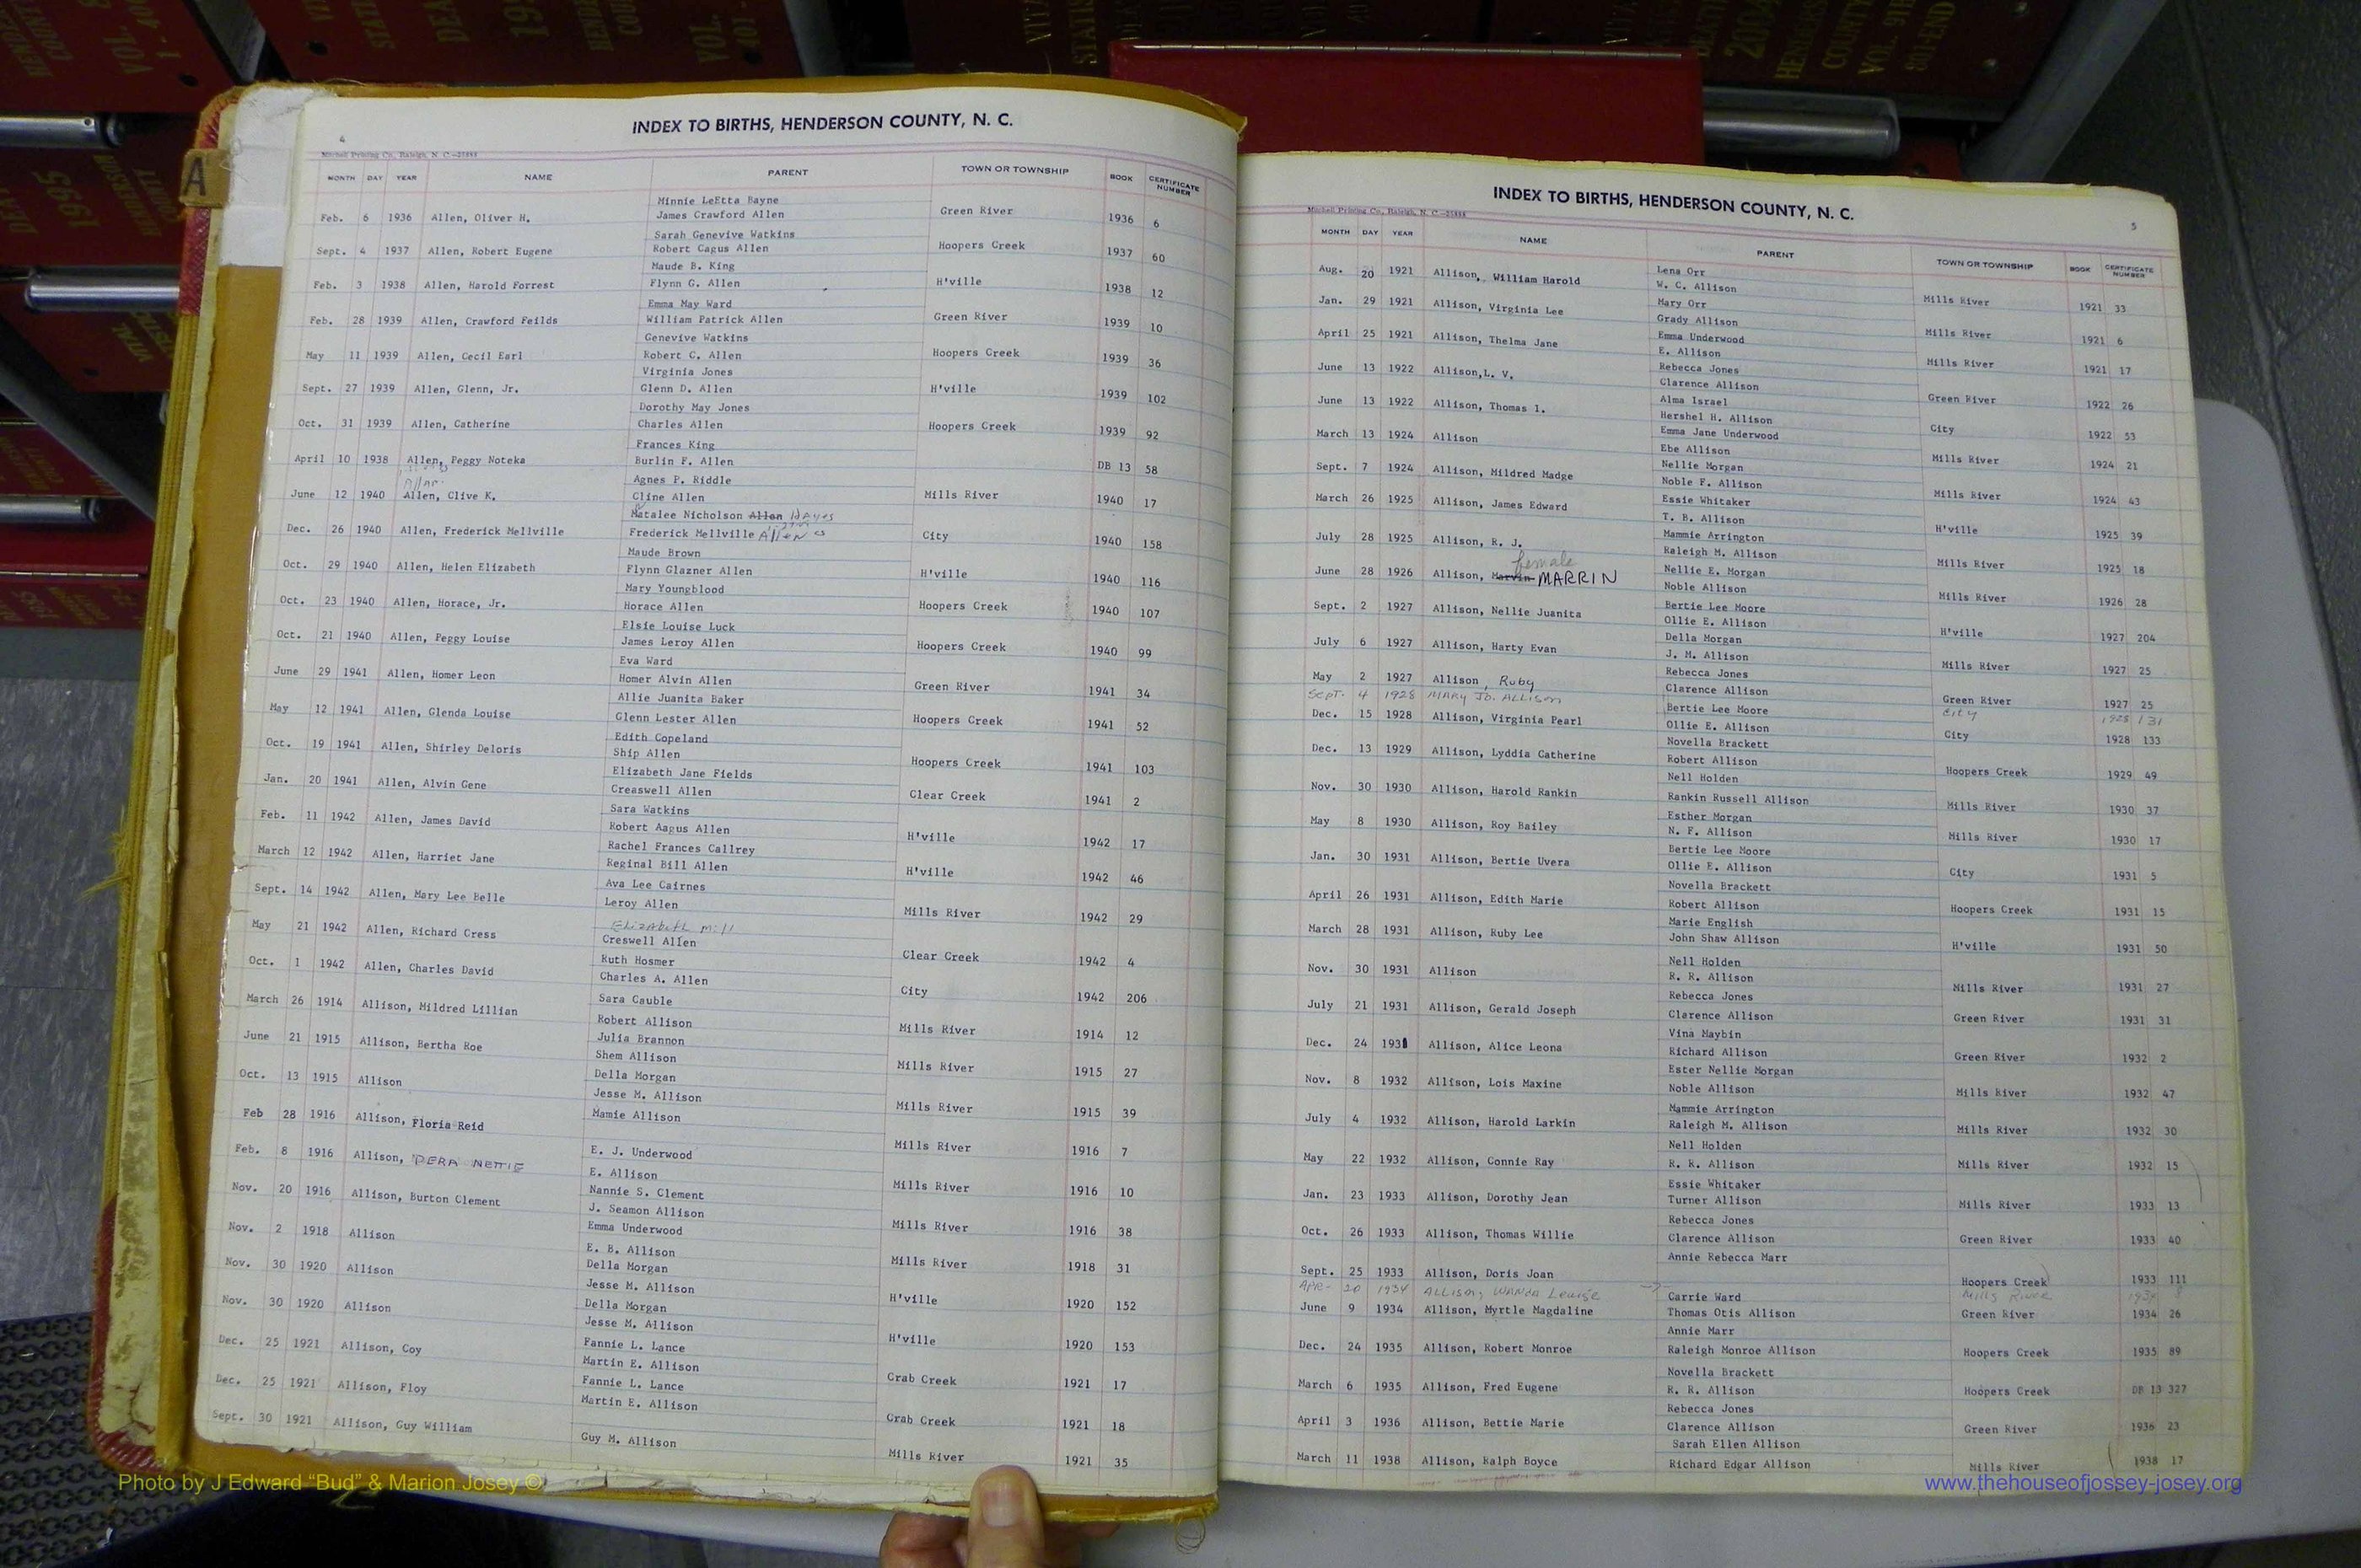 INDEX TO BIRTHS, HENDERSON COUNTY, N. C.
4
Mitchell Printing Co., Raleigh, N. C.—25888
MONTH DAY YEAR NAME PARENT TOWN OR TOWNSHIP BOOK CERTIFICATE NUMBER
Minnie LeEtta Bayne
Feb. 6 1936 Allen, Oliver H. James Crawford Allen Green River 1936 6
Sarah Genevive Watkins
Sept. 4 1937 Allen, Robert Eugene Robert Cagus Allen Hoopers Creek 1937 60
Maude B. King
Feb. 3 1938 Allen, Harold Forrest Flynn G. Allen H'ville 1938 12
Emma May Ward
Feb. 28 1939 Allen, Crawford Feilds William Patrick Allen Green River 1939 10
Genevive Watkins
May 11 1939 Allen, Cecil Earl Robert C. Allen Hoopers Creek 1939 36
Virginia Jones
Sept. 27 1939 Allen, Glenn, Jr. Glenn D. Allen H'ville 1939 102
Dorothy May Jones
Oct. 31 1939 Allen, Catherine Charles Allen Hoopers Creek 1939 92
Frances King
April 10 1938 Allen, Peggy Noteka Burlin F. Allen DB 13 58
Agnes P. Riddle
June 12 1940 Allen, Clive K. Cline Allen Mills River 1940 17
Matalee Nicholson Allen Hayes
Dec. 26 1940 Allen, Frederick Mellville Frederick Mellville Allen City 1940 158
Maude Brown
Oct. 29 1940 Allen, Helen Elizabeth Flynn Glazner Allen H'ville 1940 116
Mary Youngblood
Oct. 23 1940 Allen, Horace, Jr. Horace Allen Hoopers Creek 1940 107
Elsie Louise Luck
Oct. 21 1940 Allen, Peggy Louise James Leroy Allen Hoopers Creek 1940 99
Eva Ward
June 29 1941 Allen, Homer Leon Homer Alvin Allen Green River 1941 34
Allie Juanita Baker
May 12 1941 Allen, Glenda Louise Glenn Lester Allen Hoopers Creek 1941 52
Edith Copeland
Oct. 19 1941 Allen, Shirley Deloris Ship Allen Hoopers Creek 1941 103
Elizabeth Jane Fields
Jan. 20 1941 Allen, Alvin Gene Creaswell Allen Clear Creek 1941 2
Sara Watkins
Feb. 11 1942 Allen, James David Robert Aagus Allen H'ville 1942 17
Rachel Frances Callrey
March 12 1942 Allen, Harriet Jane Reginal Bill Allen H'ville 1942 46
Ava Lee Cairnes
Sept. 14 1942 Allen, Mary Lee Belle Leroy Allen Mills River 1942 29
Elizabeth Mill
May 21 1942 Allen, Richard Cress Creswell Allen Clear Creek 1942 4
Ruth Hosmer
Oct. 1 1942 Allen, Charles David Charles A. Allen City 1942 206
Sara Cauble
March 26 1914 Allison, Mildred Lillian Robert Allison Mills River 1914 12
Julia Brannon
June 21 1915 Allison, Bertha Roe Shem Allison Mills River 1915 27
Della Morgan
Oct. 13 1915 Allison Jesse M. Allison Mills River 1915 39
Mamie Allison
Feb 28 1916 Allison, Floria Reid Mills River 1916 7
E. J. Underwood
Feb. 8 1916 Allison, DERA NETTIE E. Allison Mills River 1916 10
Nannie S. Clement
Nov. 20 1916 Allison, Burton Clement J. Seamon Allison Mills River 1916 38
Emma Underwood
Nov. 2 1918 Allison E. B. Allison Mills River 1918 31
Della Morgan
Nov. 30 1920 Allison Jesse M. Allison H'ville 1920 152
Della Morgan
Nov. 30 1920 Allison Jesse M. Allison H'ville 1920 153
Fannie L. Lance
Dec. 25 1921 Allison, Coy Martin E. Allison Crab Creek 1921 17
Fannie L. Lance
Dec. 25 1921 Allison, Floy Martin E. Allison Crab Creek 1921 18
Sept. 30 1921 Allison, Guy William Guy M. Allison Mills River 1921 35
INDEX TO BIRTHS, HENDERSON COUNTY, N. C.
5
Mitchell Printing Co., Raleigh, N. C.—25888
MONTH DAY YEAR NAME PARENT TOWN OR TOWNSHIP BOOK CERTIFICATE NUMBER
Lena Orr
Aug. 20 1921 Allison, William Harold W. C. Allison Mills River 1921 33
Mary Orr
Jan. 29 1921 Allison, Virginia Lee Grady Allison Mills River 1921 6
Emma Underwood
April 25 1921 Allison, Thelma Jane E. Allison Mills River 1921 17
Rebecca Jones
June 13 1922 Allison, L. V. Clarence Allison Green River 1922 26
Alma Israel
June 13 1922 Allison, Thomas I. Hershel H. Allison City 1922 53
Emma Jane Underwood
March 13 1924 Allison Ebe Allison Mills River 1924 21
Nellie Morgan
Sept. 7 1924 Allison, Mildred Madge Noble F. Allison Mills River 1924 43
Essie Whitaker
March 26 1925 Allison, James Edward T. B. Allison H'ville 1925 39
Mammie Arrington
July 28 1925 Allison, R. J. Raleigh M. Allison Mills River 1925 18
female
Nellie E. Morgan
June 28 1926 Allison, Marvin MARRIN Noble Allison Mills River 1926 28
Bertie Lee Moore
Sept. 2 1927 Allison, Nellie Juanita Ollie E. Allison H'ville 1927 204
Della Morgan
July 6 1927 Allison, Harty Evan J. M. Allison Mills River 1927 25
Rebecca Jones
May 2 1927 Allison, Ruby Clarence Allison Green River 1927 25
Sept. 4 1928 MARY JO. ALLISON City 1928 131
Bertie Lee Moore
Dec. 15 1928 Allison, Virginia Pearl Ollie E. Allison City 1928 133
Novella Brackett
Dec. 13 1929 Allison, Lyddia Catherine Robert Allison Hoopers Creek 1929 49
Nell Holden
Nov. 30 1930 Allison, Harold Rankin Rankin Russell Allison Mills River 1930 37
Esther Morgan
May 8 1930 Allison, Roy Bailey N. F. Allison Mills River 1930 17
Bertie Lee Moore
Jan. 30 1931 Allison, Bertie Uvera Ollie E. Allison City 1931 5
Novella Brackett
April 26 1931 Allison, Edith Marie Robert Allison Hoopers Creek 1931 15
Marie English
March 28 1931 Allison, Ruby Lee John Shaw Allison H'ville 1931 50
Nell Holden
Nov. 30 1931 Allison R. R. Allison Mills River 1931 27
Rebecca Jones
July 21 1931 Allison, Gerald Joseph Clarence Allison Green River 1931 31
Vina Maybin
Dec. 24 1931 Allison, Alice Leona Richard Allison Green River 1932 2
Ester Nellie Morgan
Nov. 8 1932 Allison, Lois Maxine Noble Allison Mills River 1932 47
Mammie Arrington
July 4 1932 Allison, Harold Larkin Raleigh M. Allison Mills River 1932 30
Nell Holden
May 22 1932 Allison, Connie Ray R. R. Allison Mills River 1932 15
Essie Whitaker
Jan. 23 1933 Allison, Dorothy Jean Turner Allison Mills River 1933 13
Rebecca Jones
Oct. 26 1933 Allison, Thomas Willie Clarence Allison Green River 1933 40
Annie Rebecca Marr
Sept. 25 1933 Allison, Doris Joan Hoopers Creek 1933 111
APR- 20 1934 ALLISON, WANDA Louise Mills River 1934 8
Carrie Ward
June 9 1934 Allison, Myrtle Magdaline Thomas Otis Allison Green River 1934 26
Annie Marr
Dec. 24 1935 Allison, Robert Monroe Raleigh Monroe Allison Hoopers Creek 1935 89
Novella Brackett
March 6 1935 Allison, Fred Eugene R. R. Allison Hoopers Creek DB 13 327
Rebecca Jones
April 3 1936 Allison, Bettie Marie Clarence Allison Green River 1936 23
Sarah Ellen Allison
March 11 1938 Allison, Ralph Boyce Richard Edgar Allison Mills River 1938 17
Photo by J Edward "Bud" & Marion Josey ©
www.thehouseofjossey-josey.org